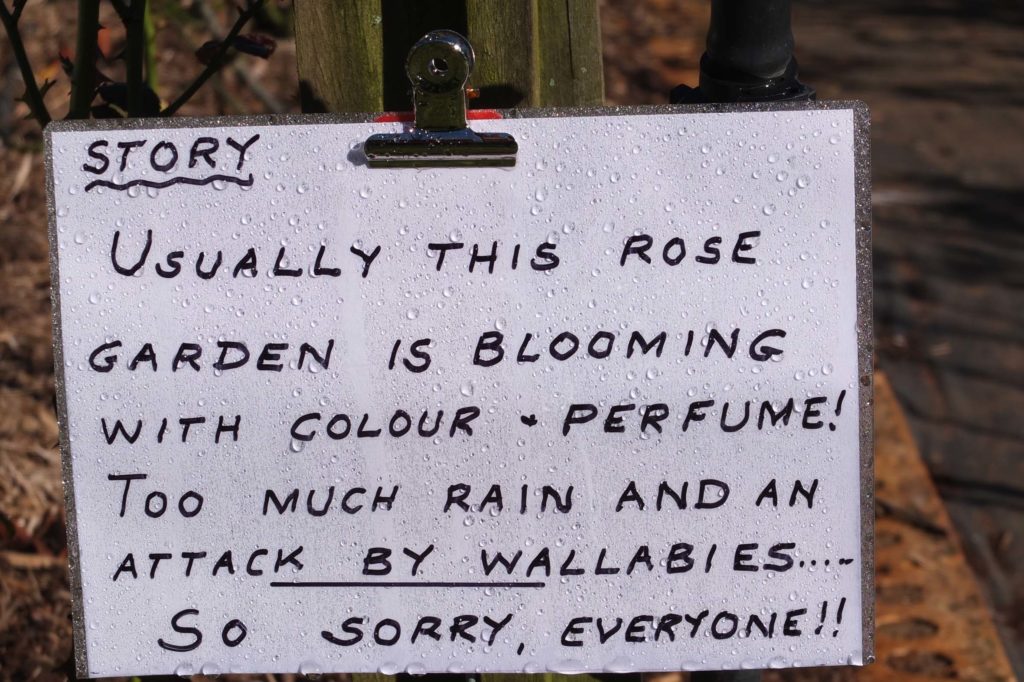 STORY
USUALLY THIS ROSE
GARDEN IS BLOOMING
WITH COLOUR & PERFUME!
TOO MUCH RAIN AND AN
ATTACK BY WALLABIES.....
SO SORRY, EVERYONE!!